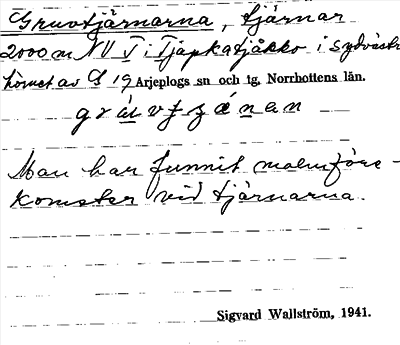 Gruvtjärnarna, tjärnar
2000 m NV V i Tjäpkatjåkko i sydvästr
hörnet av G 19 Arjeplogs sn och tg, Norrbottens län.
Man har funnit malmföre-
komster vid tjärnarna.
Sigvard Wallström, 1941.